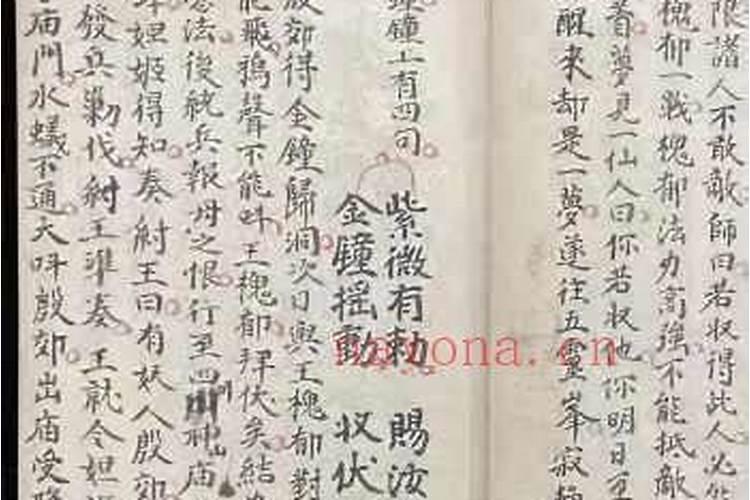 限諸人不敢敵師曰若收得此人必能
槐郁一戰槐郁法力高強不能抵敵
首夢見一仙人曰你若收他你明日
醒來却是一夢遂往五靈峯寂
鐘上有四句
紫微有勅 賜汝
金鐘摇動 收伏
殷郊得金鐘歸洞次日與王槐郁對
能飛鴉聲不能叫王槐郁拜伏矣結
法後統兵報母之恨行至四川神庙
妲姬得知奏紂王曰有妖人殷郊
發兵勦伐紂王準奏王就令妲
庙門水蟻不通大叫殷郊出庙受
nayona.cn